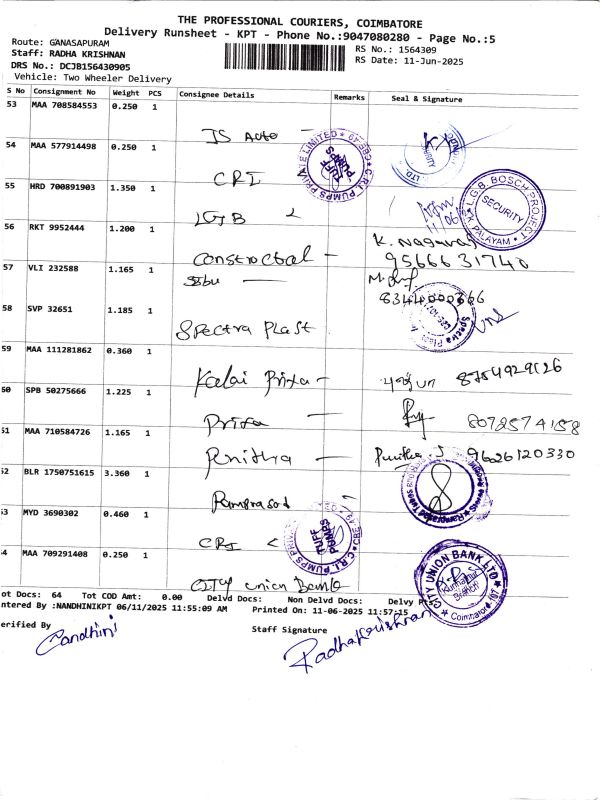 THE PROFESSIONAL COURIERS, COIMBATORE
Delivery Runsheet - KPT - Phone No.:9047080280 - Page No.:5
Route: GANASAPURAM
RS No.: 1564309
Staff: RADHA KRISHNAN
RS Date: 11-Jun-2025
DRS No.: DCJB156430905
Vehicle: Two Wheeler Delivery
S No Consignment No Weight PCS Consignee Details Remarks Seal & Signature
53 MAA 708584553 0.250 1
JS Auto -
54 MAA 577914498 0.250 1
CRI
C.R.I. PUMPS PRIVATE LIMITED ★ CBE-49
TUFF PUMPS
55 HRD 700891903 1.350 1
LGB
L.G.B. BOSCH PROJECT
SECURITY
PALAYAM
56 RKT 9952444 1.200 1
Constroctal - K. Nagaraj
95666 31740
57 VLI 232588 1.165 1
ssbu -
8344000366
58 SVP 32651 1.185 1
Spectra Plast
59 MAA 111281862 0.360 1
Kalai Priya - 8754929126
60 SPB 50275666 1.225 1
Priya - 8072574158
61 MAA 710584726 1.165 1
Punitha - Punitha.S 9626120330
62 BLR 1750751615 3.360 1
Ramprasad
63 MYD 3690302 0.460 1
CRI
TUFF PUMPS
64 MAA 709291408 0.250 1
City Union Bank
CITY UNION BANK LTD
Branch
Coimbatore
ot Docs: 64 Tot COD Amt: 0.00 Delvd Docs: Non Delvd Docs: Delvy Pts
ntered By :NANDHINIKPT 06/11/2025 11:55:09 AM Printed On: 11-06-2025 11:57:15
erified By
Staff Signature
Nandhini
RadhaKrishnan